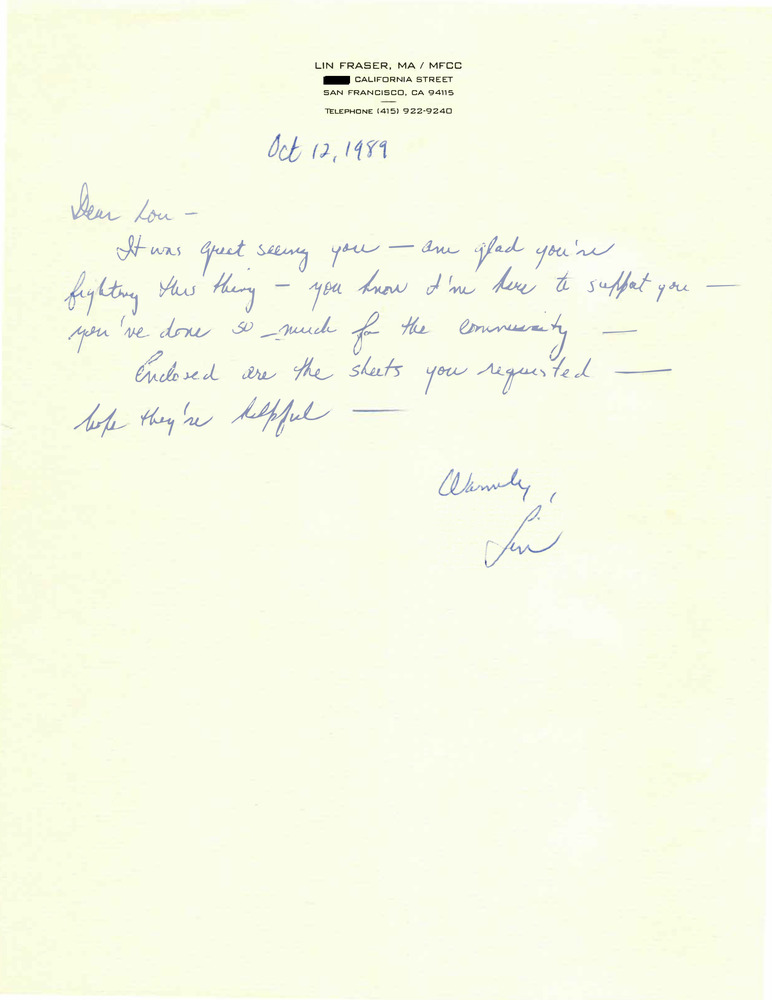 LIN FRASER, MA / MFCC
CALIFORNIA STREET
SAN FRANCISCO, CA 94115
TELEPHONE (415) 922-9240
Oct 12, 1989
Dear Lou -
It was great seeing you — am glad you're
fighting this thing - you know I'm here to support you —
you've done so much for the community —
Enclosed are the sheets you requested —
hope they're helpful —
Warmly,
Lin